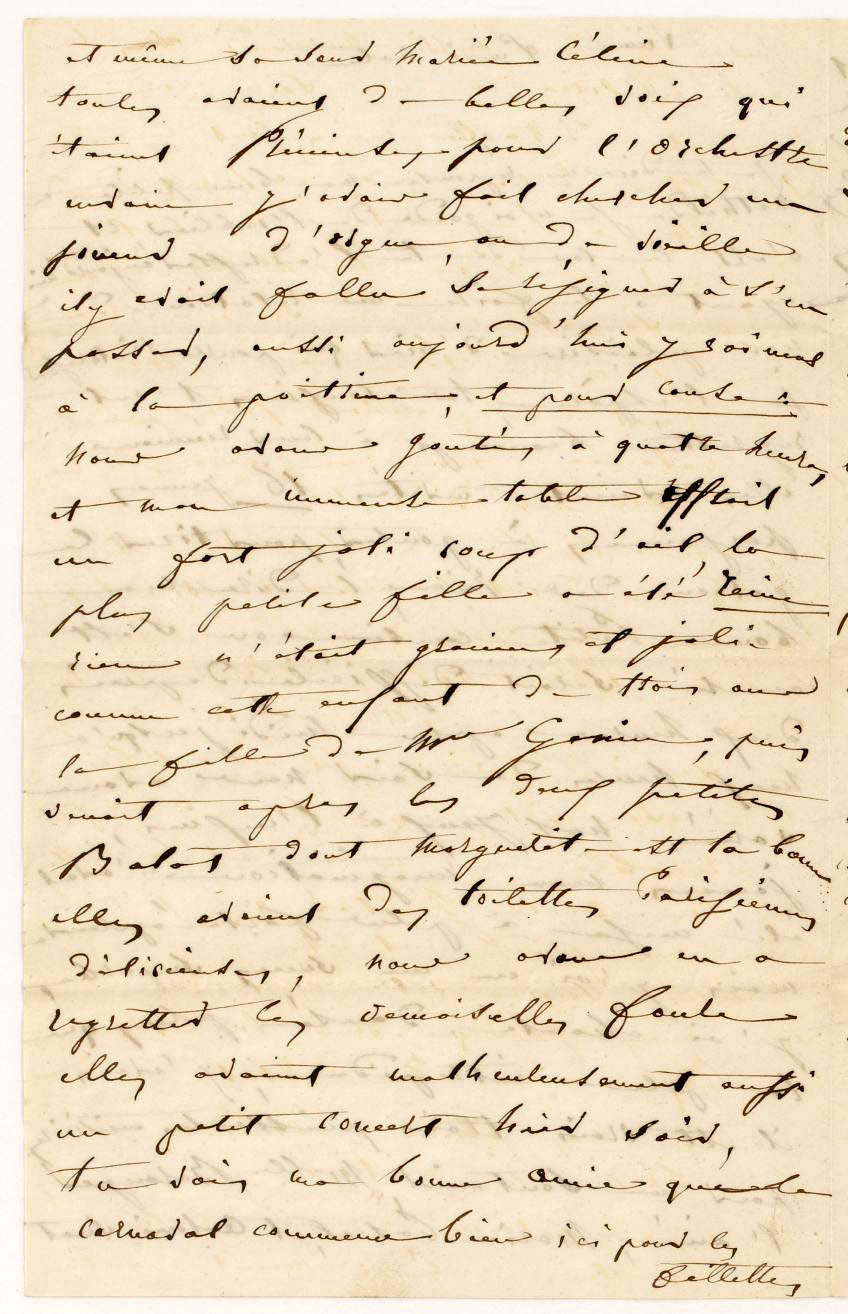 et même sa sœur Mariée Céline
toutes avaient de belles voix qui
étaient Réunies, pour l'Orchesttre
envain j'avais fait chercher un
joueur d'orgue, ou de vieille
il y avait fallu se résigner à s'en
passer, aussi aujourd'hui j'y vois mal
à la poittrine, et pour cause.
nous avons goutés à quattre heures,
et mon immense table offrait
un fort joli coup d'œil, la
plus petite fille a été reine
rien n'était gracieux et jolie
comme cette enfant de trois ans
la fille de Mme Genin, puis
venait après les deux petites
Balat dont Marguerite est la bonne
elles avaient des toilettes Parisiennes
délicieuses, nous avons eu a
regretter les demoiselles foule
elles avaient malheureusement aussi
un petit concert hier soir,
tu vois, ma bonne amie que le
carnaval commence bien ici pour les
fillettes